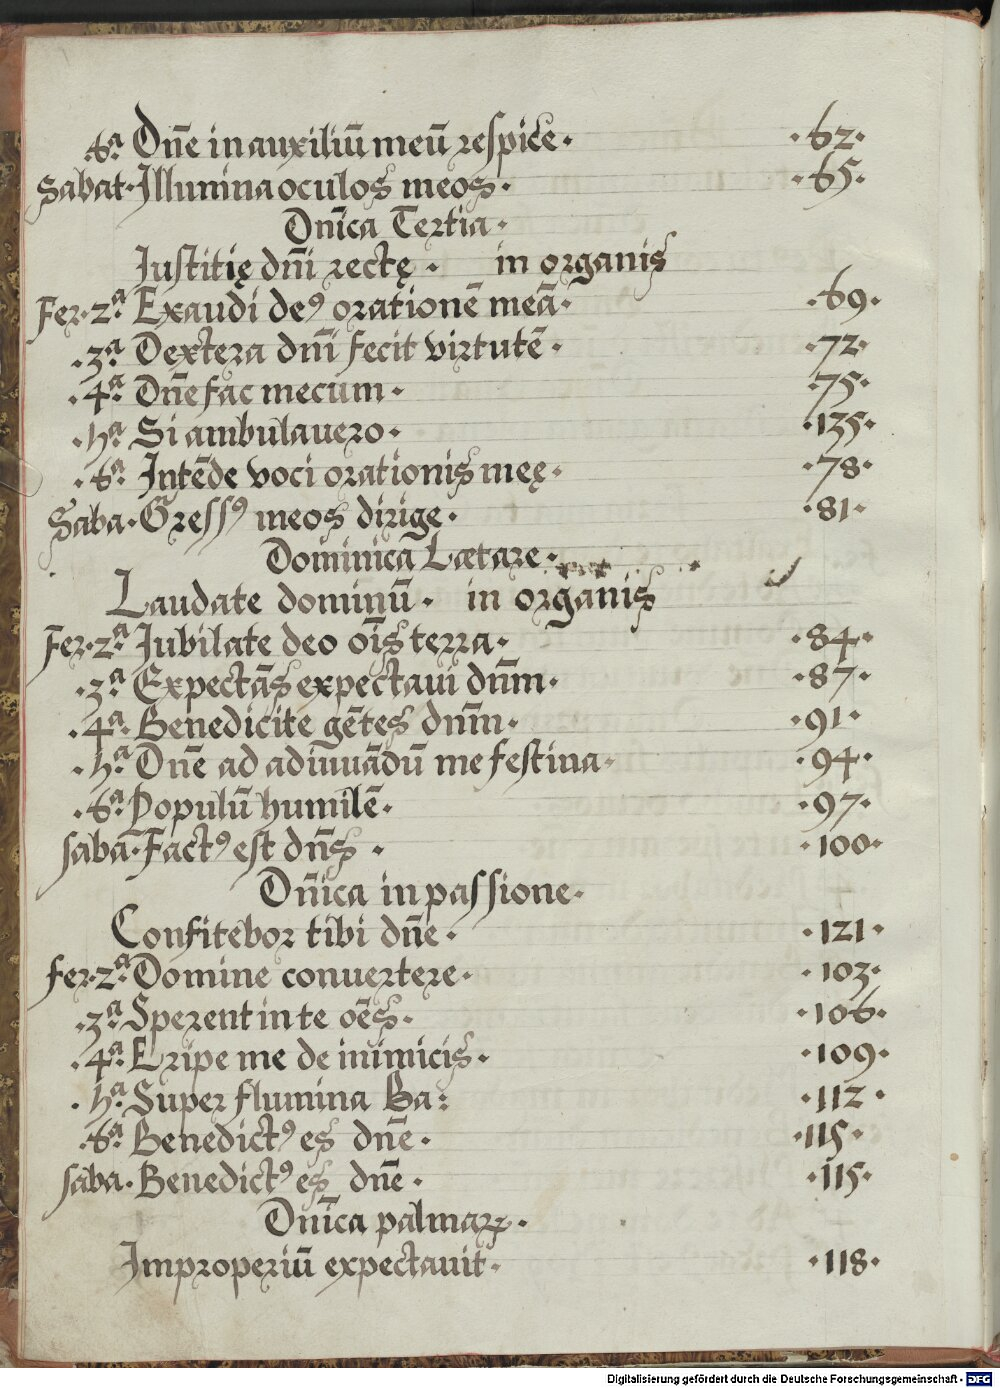 ·6ᵃ· Dn̄e in auxiliū meū respice· ·62·
Sabat· Illumina oculos meos· ·65·
Dn̄ica Tertia·
Justitię dn̄i rectę · in organis
Fer·2ᵃ· Exaudi deꝰ orationē meā· ·69·
·3ᵃ· Dextera dn̄i fecit virtutē · ·72·
·4ᵃ· Dn̄e fac mecum · ·75·
·5ᵃ· Si ambulauero· ·135·
·6ᵃ· Intēde voci orationis meę· ·78·
Saba· Gressꝰ meos dirige· ·81·
Dominica Lætare·
Laudate dominū· in organis
Fer·2ᵃ· Jubilate deo oīs terra· ·84·
·3ᵃ· Expectās expectaui dn̄m· ·87·
·4ᵃ· Benedicite gētes dn̄m· ·91·
·5ᵃ· Dn̄e ad adiuuādū me festina· ·94·
·6ᵃ· Populū humilē· ·97·
sabā· Factꝰ est dn̄s · ·100·
Dn̄ica in passione·
Confitebor tibi dn̄e· ·121·
fer·2ᵃ· Domine conuertere· ·103·
·3ᵃ· Sperent in te oēs· ·106·
·4ᵃ· Eripe me de inimicis· ·109·
·5ᵃ· Super flumina Ba: ·112·
·6ᵃ· Benedictꝰ es dn̄e· ·115·
saba· Benedictꝰ es dn̄e· ·115·
Dn̄ica palmaꝝ·
Improperiū expectauit· ·118·
Digitalisierung gefördert durch die Deutsche Forschungsgemeinschaft - DFG